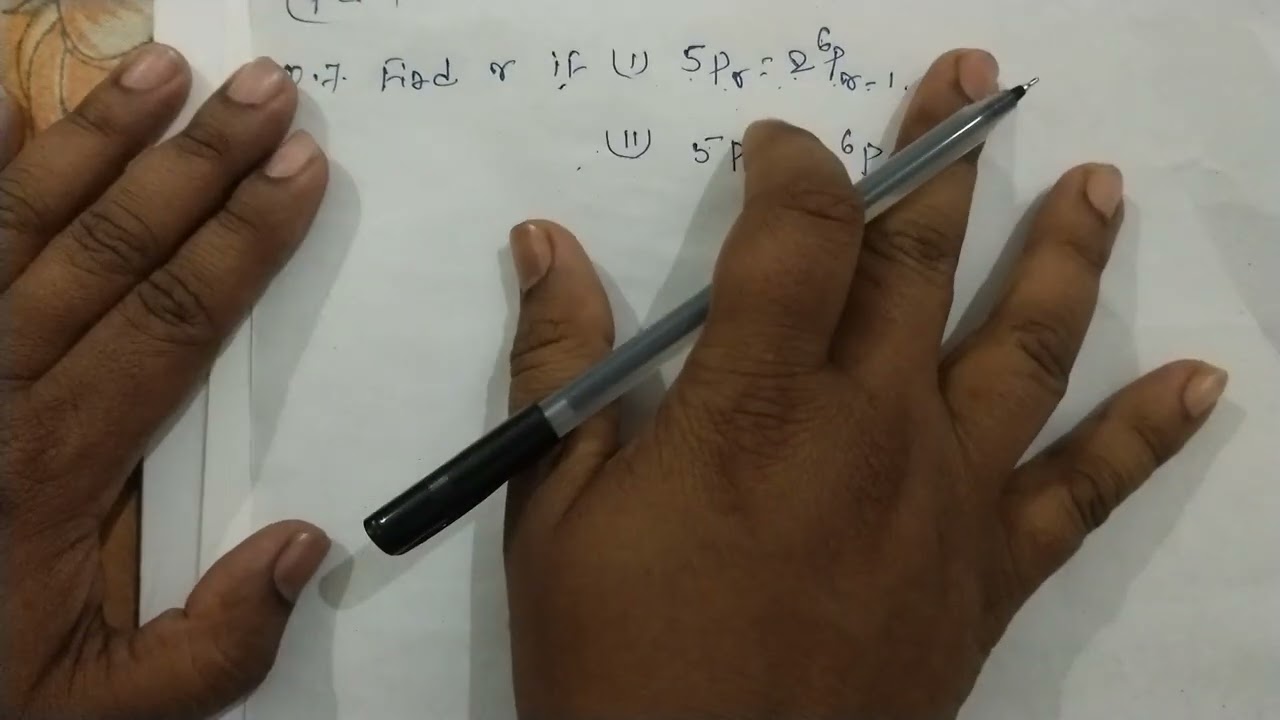 Q.7. Find r if (i) 5Pr = 2 6Pr-1.
(ii) 5P 6P